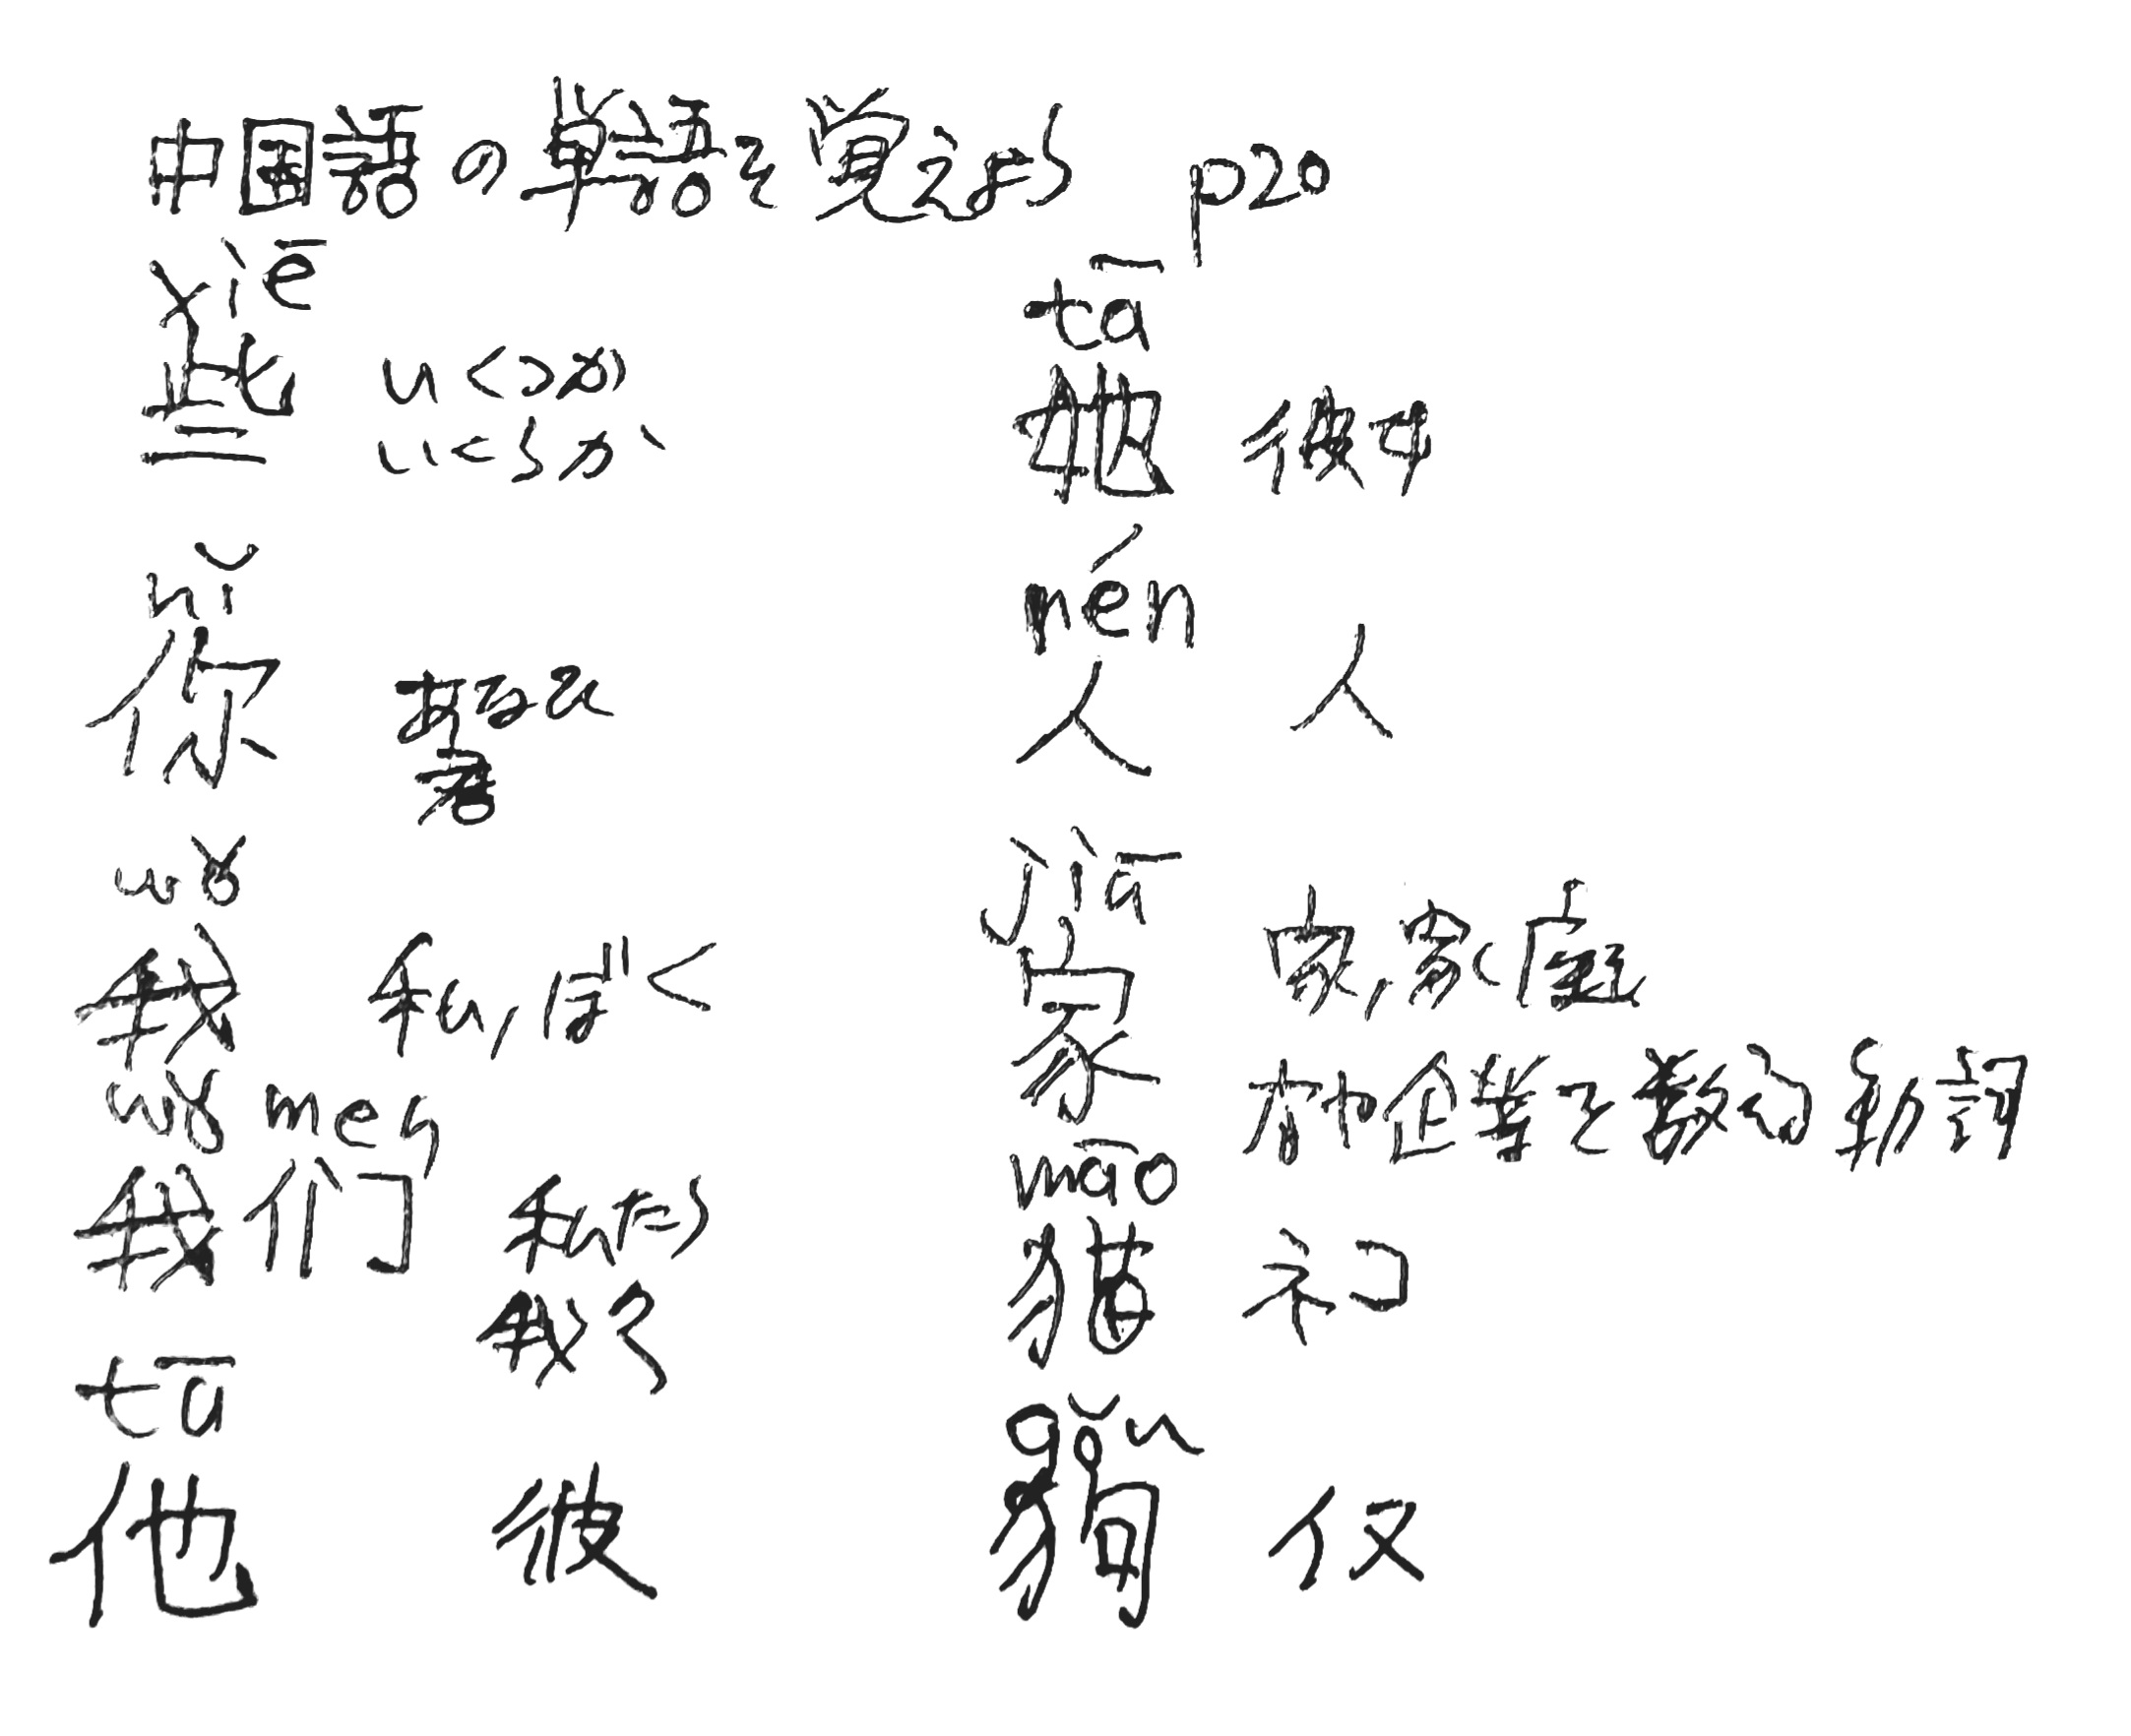 中国語の単語を覚えよう p20
xiē
些 いくつか
いくらか
nǐ
你 あなた
君
wǒ
我 私,ぼく
wǒ men
我们 私たち
我々
tā
他 彼
tā
她 彼女
rén
人 人
jiā
家 家,家庭
や企業を数える助詞
māo
猫 ネコ
gǒu
狗 イヌ